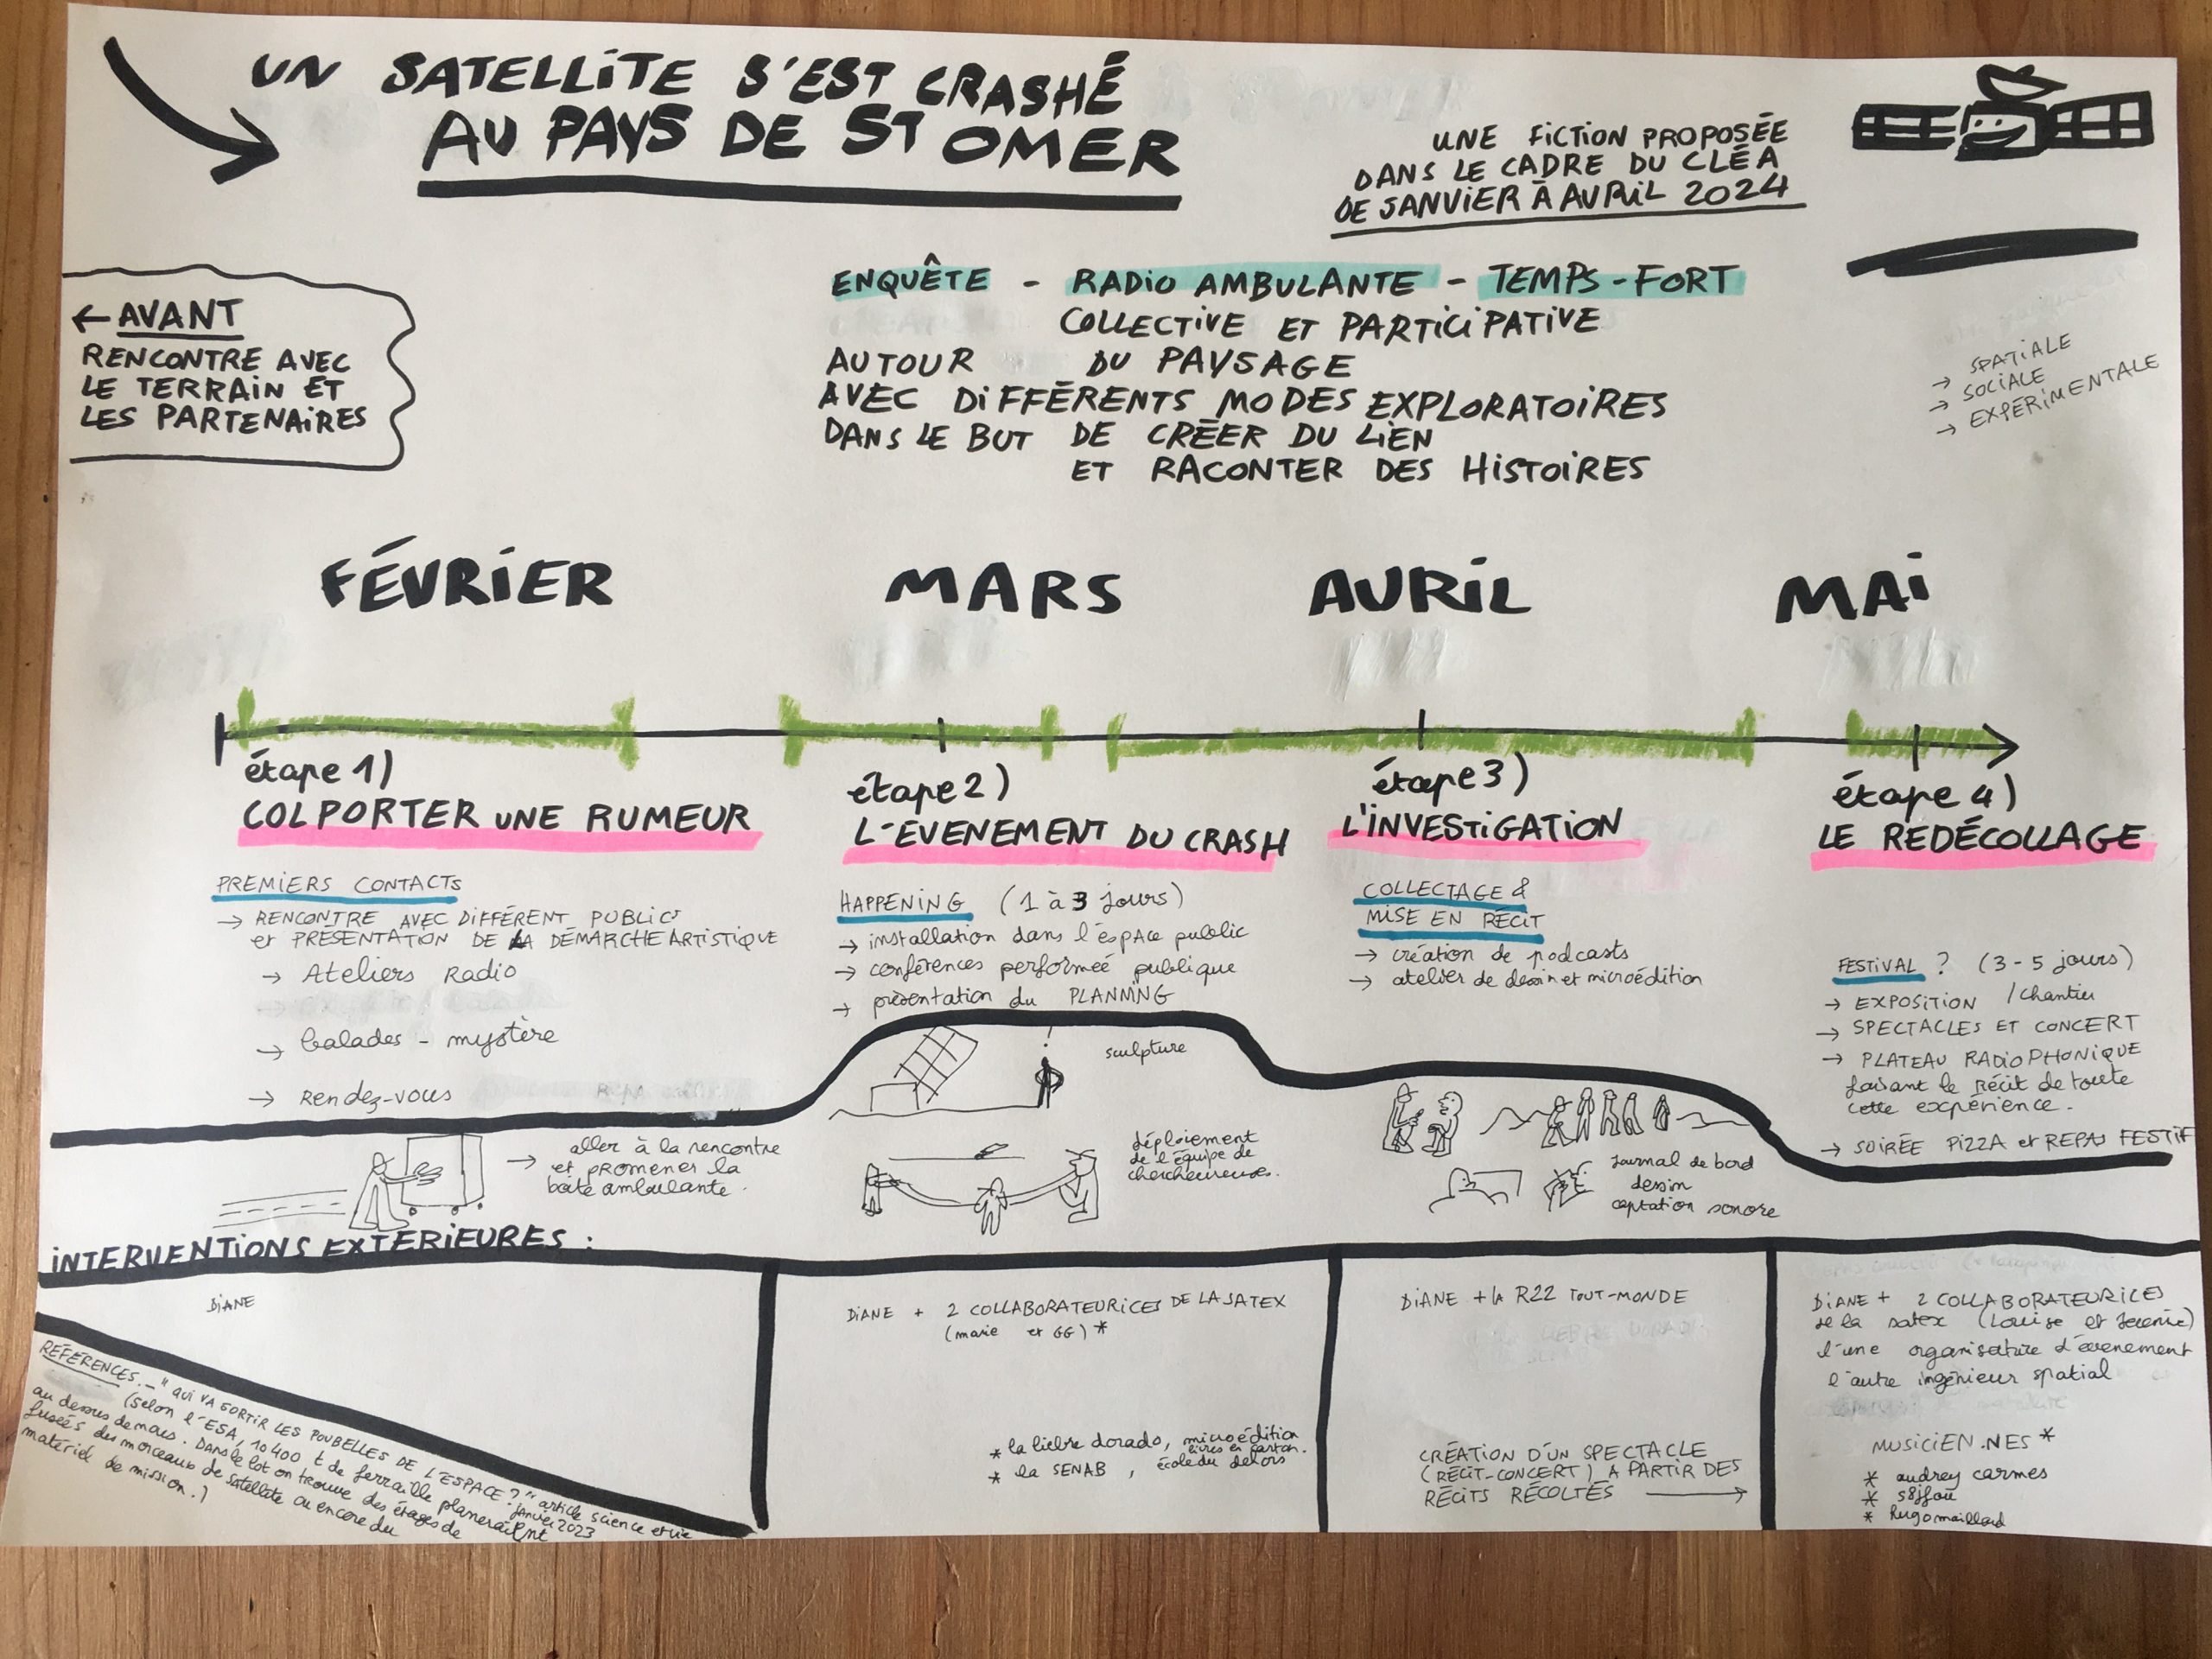 UN SATELLITE S'EST CRASHÉ
AU PAYS DE ST OMER
UNE FICTION PROPOSÉE
DANS LE CADRE DU CLÉA
DE JANVIER À AVRIL 2024
← AVANT
RENCONTRE AVEC
LE TERRAIN ET
LES PARTENAIRES
ENQUÊTE - RADIO AMBULANTE - TEMPS-FORT
COLLECTIVE ET PARTICIPATIVE
AUTOUR DU PAYSAGE
AVEC DIFFÉRENTS MODES EXPLORATOIRES
DANS LE BUT DE CRÉER DU LIEN
ET RACONTER DES HISTOIRES
→ SPATIALE
→ SOCIALE
→ EXPÉRIMENTALE
FÉVRIER
MARS
AVRIL
MAI
étape 1)
COLPORTER UNE RUMEUR
PREMIERS CONTACTS
→ RENCONTRE AVEC DIFFÉRENT PUBLICS
et PRÉSENTATION DE LA DÉMARCHE ARTISTIQUE
→ Ateliers Radio
→ balades - mystère
→ Rendez-vous
étape 2)
L'EVENEMENT DU CRASH
HAPPENING (1 à 3 jours)
→ installation dans l'éspace public
→ conférences performeé publique
→ présentation du PLANNING
étape 3)
L'INVESTIGATION
COLLECTAGE &
MISE EN RÉCIT
→ création de podcasts
→ atelier de dessin et microédition
étape 4)
LE REDÉCOLLAGE
FESTIVAL ? (3-5 jours)
→ EXPOSITION /Chantier
→ SPECTACLES ET CONCERT
→ PLATEAU RADIOPHONIQUE
faisant le récit de toute
cette expérience.
→ SOIRÉE PIZZA et REPAS FESTIF
→ aller à la rencontre
et promener la
boîte ambulante.
sculpture
déploiement
de l'équipe de
chercheureuses.
Journal de bord
dessin
captation sonore
INTERVENTIONS EXTÉRIEURES :
DIANE
RÉFÉRENCES. - "QUI VA SORTIR LES POUBELLES DE L'ESPACE ?" article science et vie
janvier 2023
(selon l'ESA, 10400 t de ferraille planeraient
au dessus de nous. Dans le lot on trouve des étages de
fusées des morceaux de satellite ou encore du
matériel de mission.)
DIANE + 2 COLLABORATEURICES DE LA SATEX
(marie et GG) *
* la liebre dorado, microédition
livres en carton.
* la SENAB, école du dehors
DIANE + la R22 TOUT-MONDE
CRÉATION D'UN SPECTACLE
(RÉCIT-CONCERT) A PARTIR DES
RÉCITS RÉCOLTÉS →
DIANE + 2 COLLABORATEURICES
de la satex (Louise et Jérémie)
l'une organisatrice d'évenement
l'autre ingénieur spatial
MUSICIEN.NES *
* audrey carmes
* s8jfou
* hugo maillard